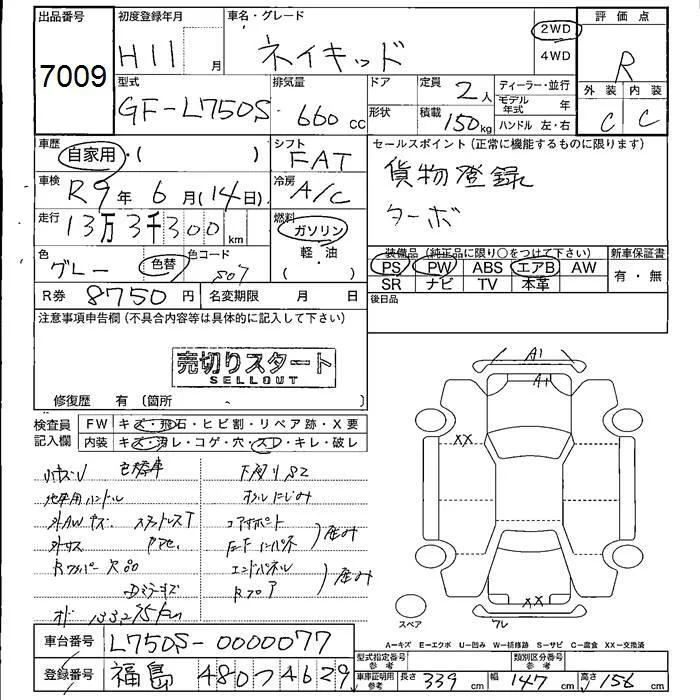 出品番号 初度登録年月 車名・グレード 評価点
7009 H11 月 ネイキッド 2WD 4WD R
型式 排気量 ドア 定員 ディーラー・並行 外装 内装
GF-L750S 660 cc 形状 2人 モデル年式 年 C C
積載 150kg ハンドル 左・右
車歴 シフト セールスポイント (正常に機能するものに限ります)
自家用・( ) FAT 貨物登録
車検 冷房 ターボ
R9年 6月 (14日) A/C
走行 燃料
13万3千300 km ガソリン 軽油
色 色替 色コード 装備品 (純正品に限り○をつけて下さい) 新車保証書
グレー S07 PS PW ABS エアB AW 有・無
SR ナビ TV 本革
R券 8750円 名変期限 月 日 後日品
注意事項申告欄 (不具合内容等は具体的に記入して下さい)
売切りスタート
SELLOUT
修復歴 有 (箇所
検査員記入欄 FW キズ・飛石・ヒビ割・リペア跡・X要
内装 キズ・汚レ・コゲ・穴・スレ・キレ・破レ
色替車 下廻りS2
ハンドル オイルにじみ
外AWキズ スタッドレスT コアサポート
エンドパネル
Rワイパー
Dミラーキズ Rフロア
A1
A1
XX
XX
スペア
A=キズ E=エクボ U=凹み W=補修跡 S=サビ C=腐食 XX=交換済
車台番号 L750S-0000077 型式指定番号 参考 類別区分番号 参考
登録番号 福島 480つ4629 車庫証明用 参考 長さ 339 cm 幅 147 cm 高さ 156 cm